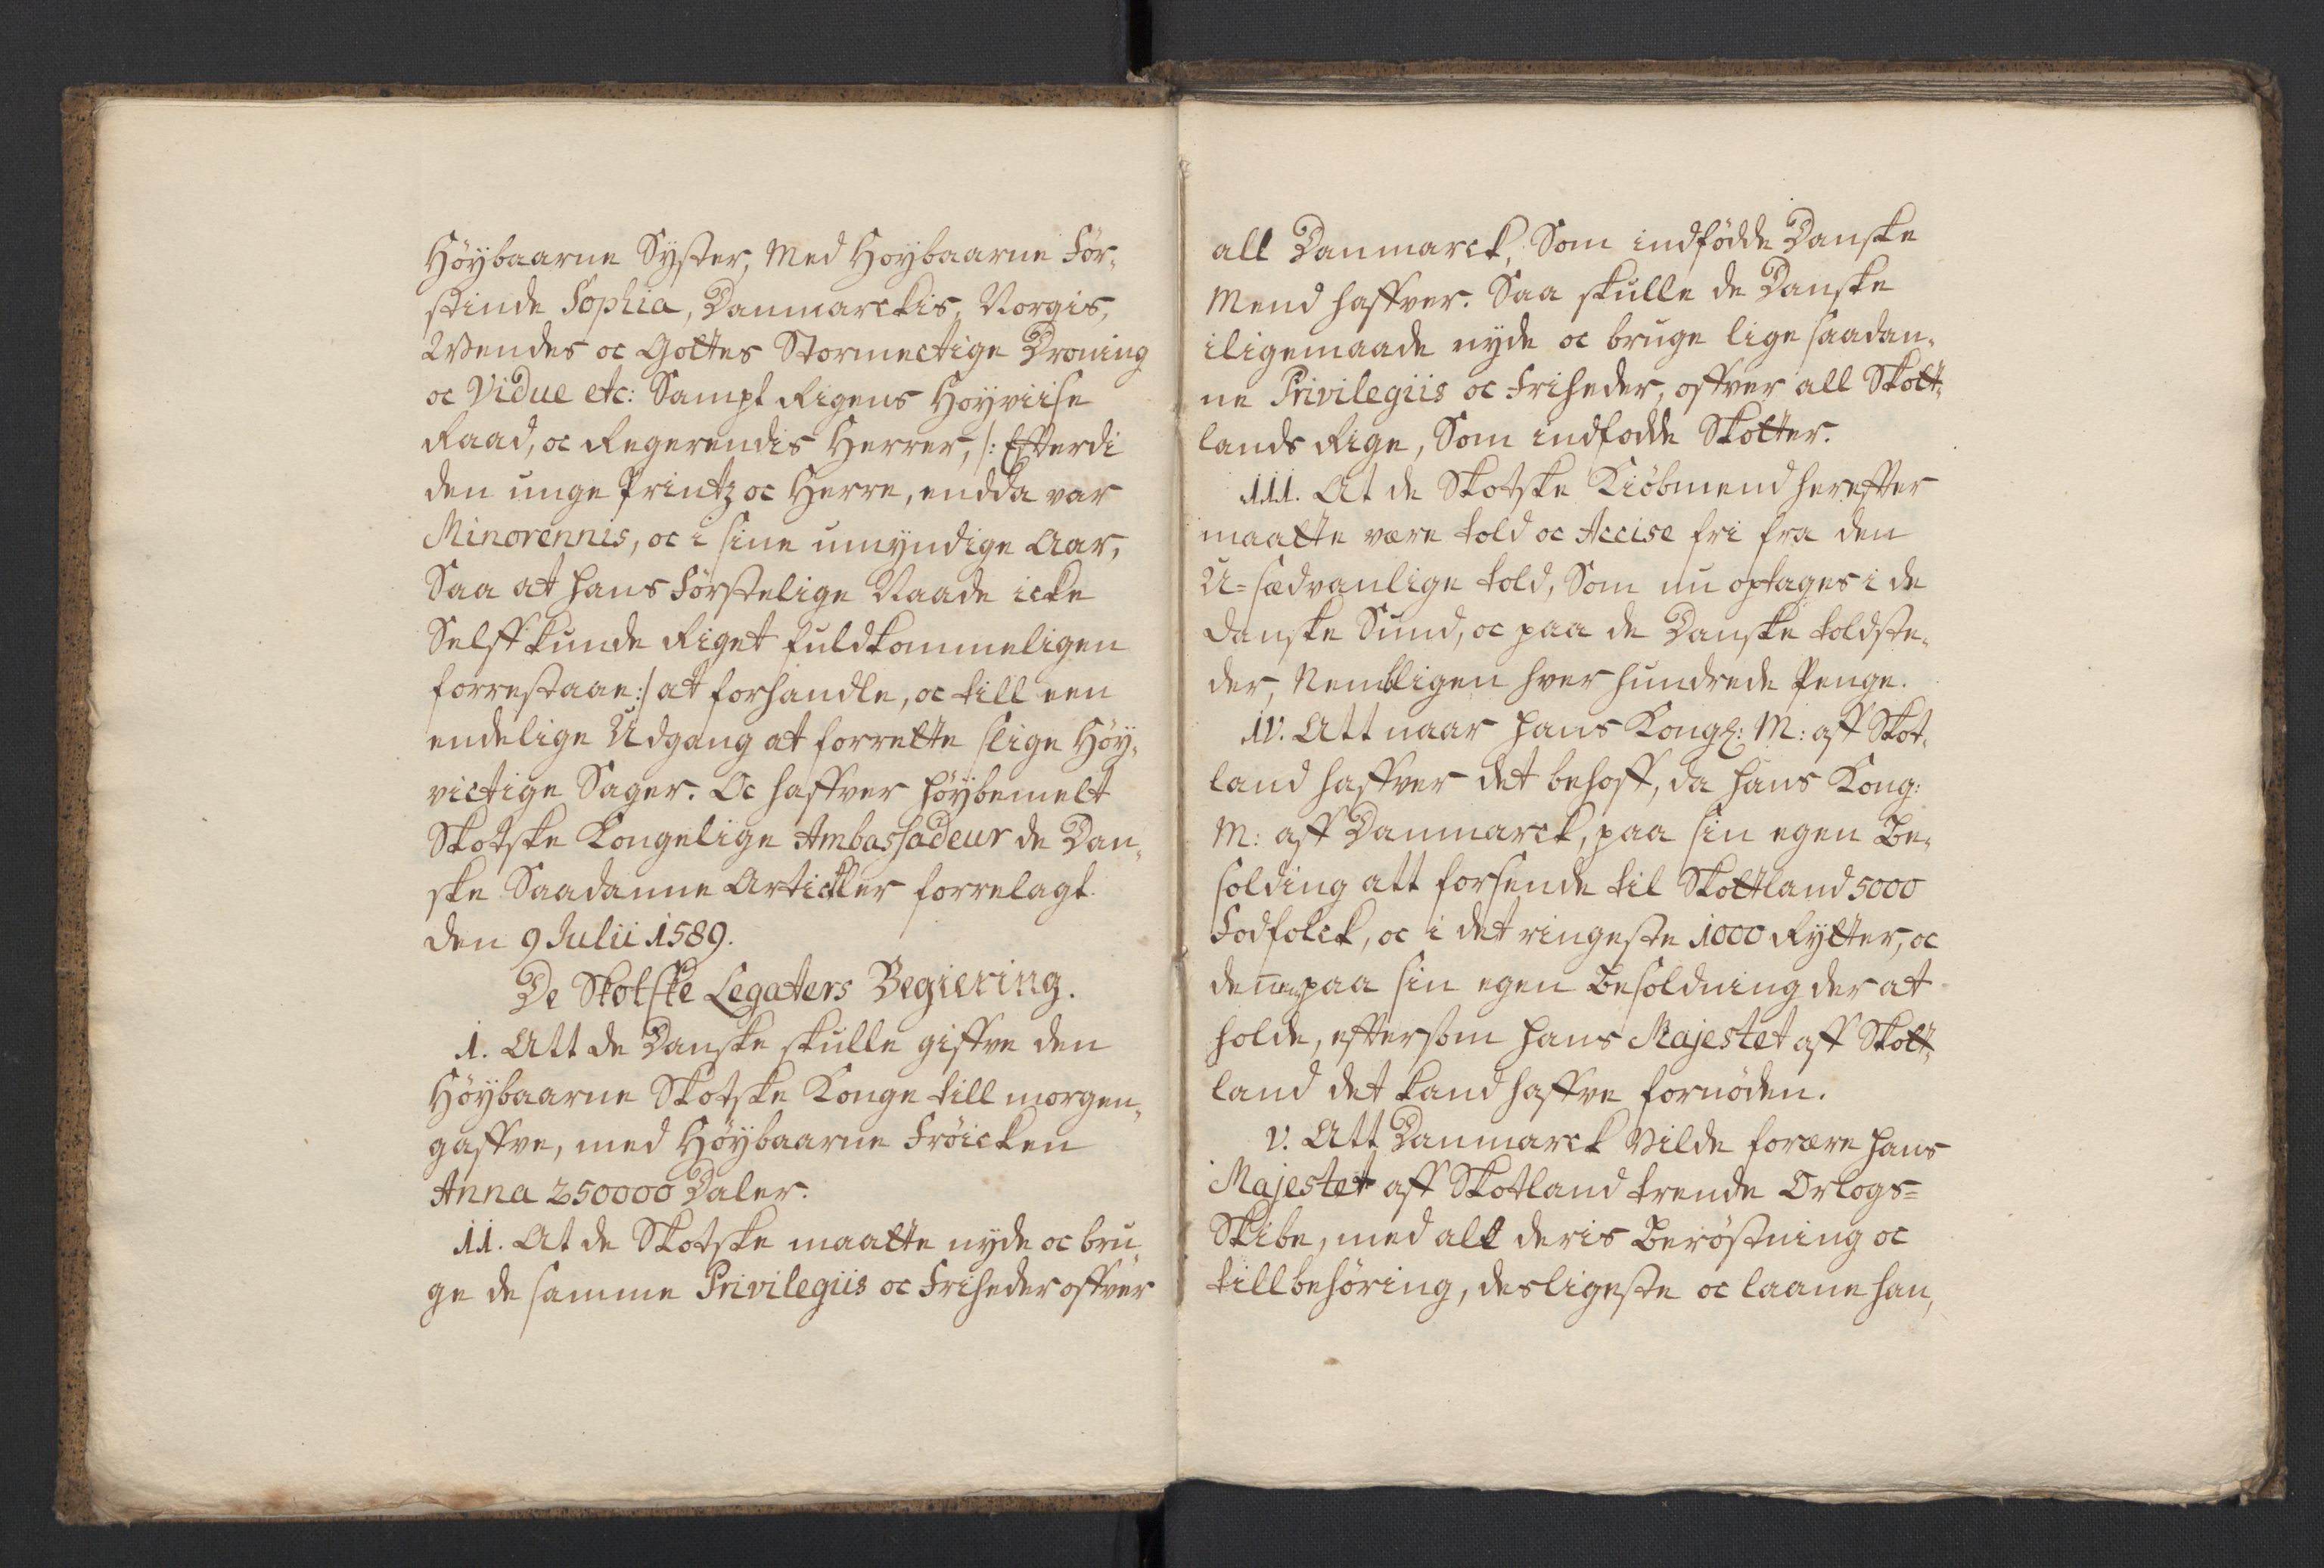 Höybaarne Syster, Med Hoybaarne För-
stinde Sophia, Danmarckis, Norgis,
Wendes oc Gottes Stormectige Droning
oc Vidue etc: Sampt Rigens Hoyviise
Raad, oc Regerendis Herrer, /: Efterdi
den unge Printz oc Herre, endda var
Minorennis, oc i sine umyndige Aar,
Saa at hans Förstelige Naade icke
Selff kunde Riget fuldkommeligen
forrestaae :/ at forhandle, oc till een
endelige Udgang at forrette slige Höy-
victige Sager. Oc haffver höybemelt
Skotske Kongelige Ambassadeur de Dan-
ske Saadanne Artickler forrelagt
den 9 Julii 1589.
De Skotske Legaters Begiering.
1. Att de Danske skulle giffve den
Höybaarne Skotske Konge till morgen-
gaffve, med Höybaarne Fröicken
Anna 250000 Daler.
11. At de Skotske maatte nyde oc bru-
ge de samme Privilegiis oc Friheder offver
all Danmarck, Som indfödde Danske
Mend haffver. Saa skulle de Danske
iligemaade nyde oc bruge lige saadan-
ne Privilegiis oc Friheder, offver all Skott-
lands Rige, Som indfodde Skotter.
111. At de Skotske Kiöbmend herefter
maatte være told oc Accise fri fra den
U-sædvanlige told, Som nu optages i de
danske Sund, oc paa de Danske toldste-
der, Nembligen hver hundrede Penge.
1V. Att naar hans Kongl: M: aff Skot-
land haffver det behoff, da hans Kong:
M: aff Danmarck, paa sin egen Be-
solding att forsende til Skottland 5000
Fodfolck, oc i det ringeste 1000 Rytter, oc
dennem paa sin egen Besoldning der at
holde, eftersom hans Majestet aff Skott-
land det kand haffve fornöden.
V. Att Danmarck Vilde forære hans
Majestet aff Skotland trende Orlogs-
Skibe, med all deris Beröstning oc
tillbehöring, desligeste oc laane han-